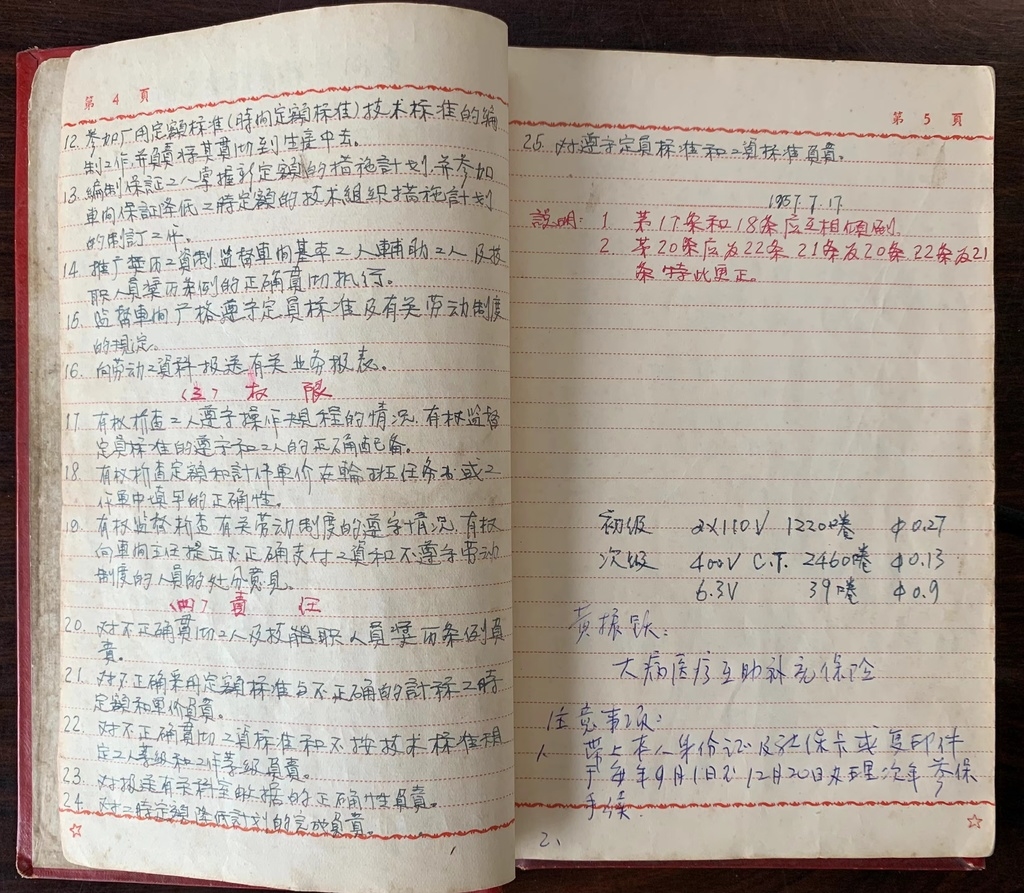 第 4 頁
12. 参加厂用定額标准(時间定額标准)技术标准的編
制工作,并負責将其貫切到生産中去。
13. 編制保証工人掌握新定額的措施計划,并参加
車间保証降低工時定額的技术組織措施計划
的制訂工作。
14. 推广奨历工資制,監督車间基本工人輔助工人及技
职人員奨历条例的正确貫切执行。
15. 监督車间严格遵守定員标准及有关劳动制度
的規定。
16. 向劳动工資科报送有关业务报表。
(三) 权 限
17. 有权检查工人遵守操作規程的情况,有权监督
定員标准的遵守和工人的正确配备。
18. 有权检查定額和計件單价在輪班任务书或工
作單中填写的正确性。
19. 有权监督检查有关劳动制度的遵守情况,有权
向車间主任提出不正确支付工資和不遵守劳动
制度的人員的处分意見。
(四) 責 任
20. 对不正确貫切工人及技職人員奨历条例負
責。
21. 对不正确采用定額标准与不正确的計祘工時
定額和單价負責。
22. 对不正确貫切工資标准和不按技术标准規
定工人等級和工作等級負責。
23. 对报送有关科室数据的正确性負責。
24. 对工時定額降低計划的完成負責。
第 5 頁
25. 对遵守定員标准和工資标准負責。
1957. 7. 17.
說明: 1. 第17条和18条应互相傾倒.
2. 第20条应为22条 21条为20条 22条为21
条 特此更正。
初级 2X110V 1220卷 φ0.27
次级 400V C.T. 2460卷 φ0.13
6.3V 39卷 φ0.9
黄振铁:
大病医疗互助补充保险
注意事项:
1、 带上本人身份证及社保卡或复印件
于每年9月1日至12月20日办理次年参保
手续.
2、